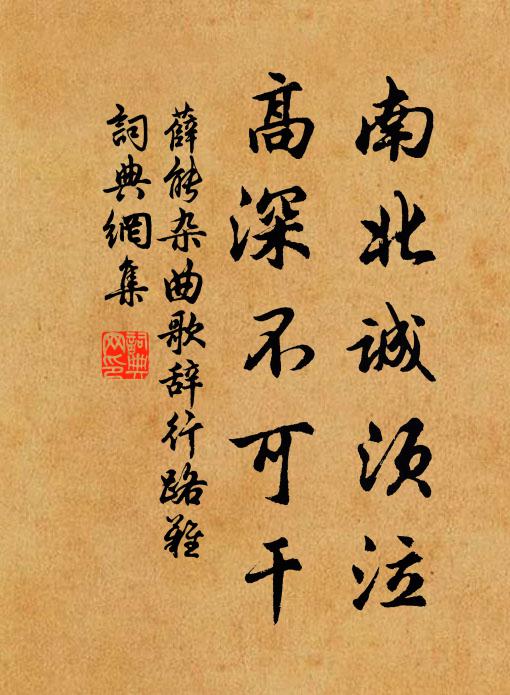 南北誠須泣
高深不可干
薛能杂曲歌辞行路難
詞典網集
詞典网印